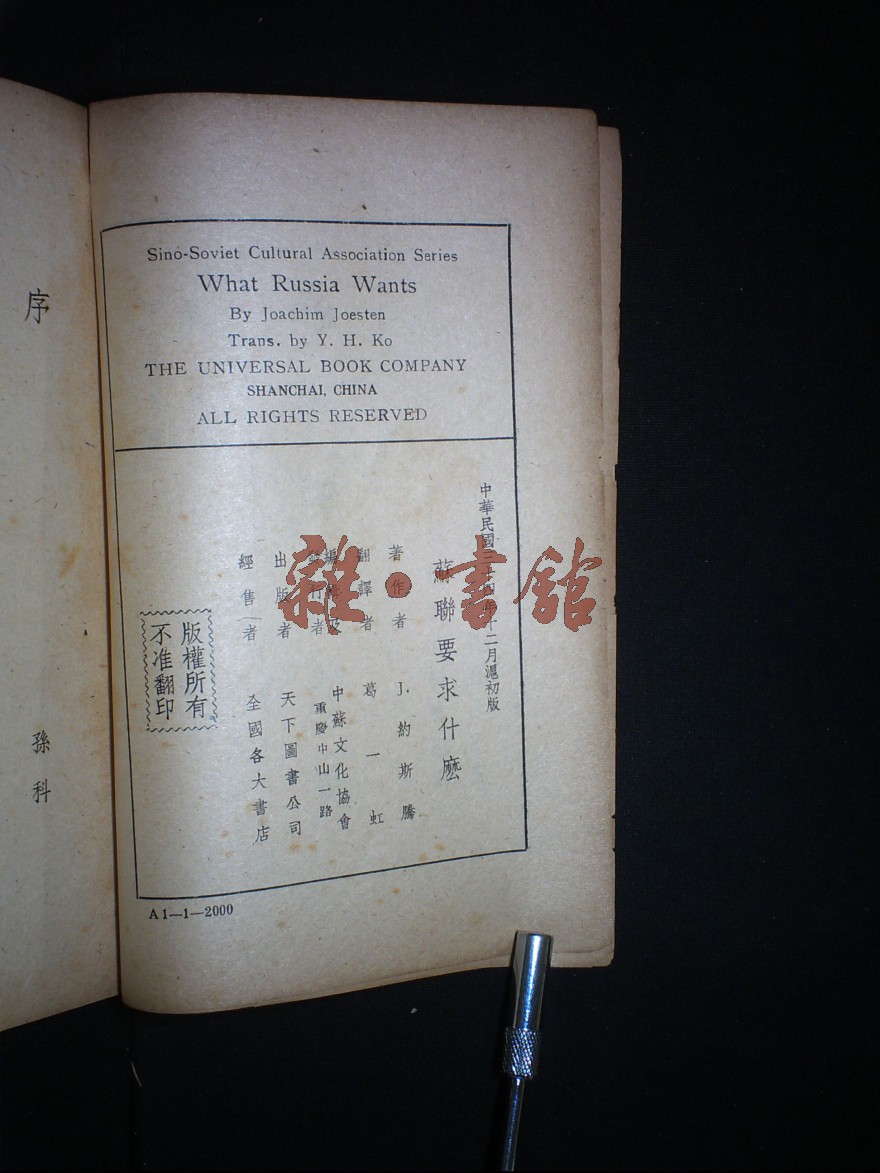 序
孫科
Sino-Soviet Cultural Association Series
What Russia Wants
By Joachim Joesten
Trans. by Y. H. Ko
THE UNIVERSAL BOOK COMPANY
SHANCHAI, CHINA
ALL RIGHTS RESERVED
中華民國三十四年十二月滬初版
蘇聯要求什麽
著作者 J. 約斯騰
翻譯者 葛一虹
中蘇文化協會
重慶中山一路
出版者 天下圖書公司
經售者 全國各大書店
版權所有
不准翻印
A 1—1—2000
雜·書館